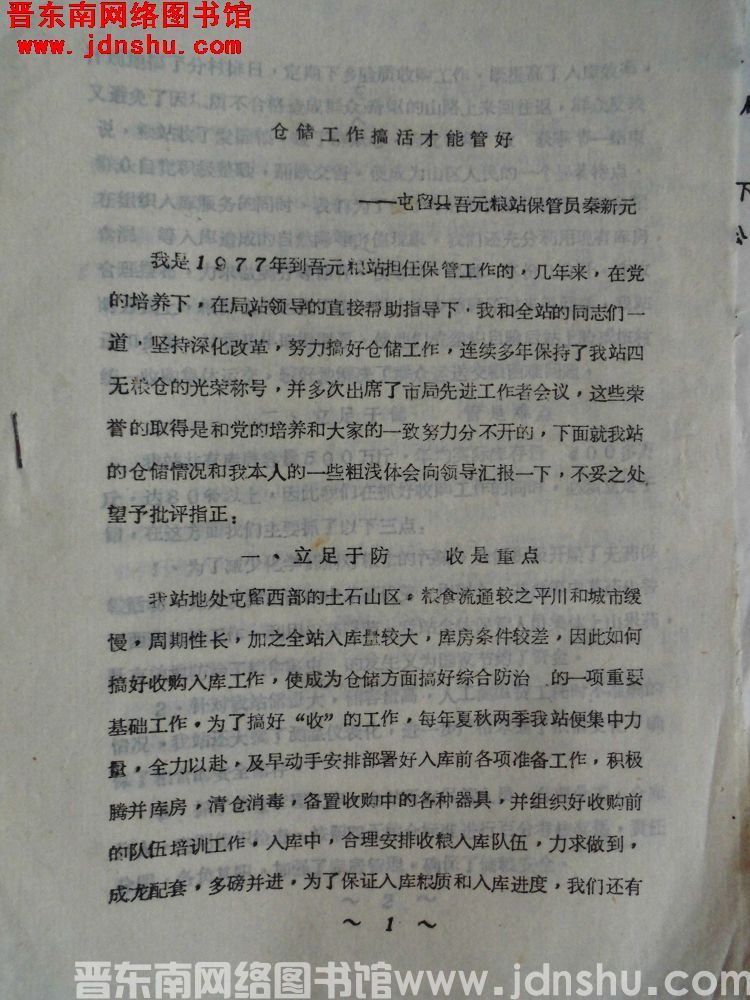 晋东南网络图书馆
www.jdnshu.com
仓储工作搞活才能管好
——屯留县吾元粮站保管员秦新元
我是1977年到吾元粮站担任保管工作的，几年来，在党
的培养下，在局站领导的直接帮助指导下，我和全站的同志们一
道，坚持深化改革，努力搞好仓储工作，连续多年保持了我站四
无粮仓的光荣称号，并多次出席了市局先进工作者会议，这些荣
誉的取得是和党的培养和大家的一致努力分不开的，下面就我站
的仓储情况和我本人的一些粗浅体会向领导汇报一下，不妥之处
望予批评指正：
一、立足于防 收是重点
我站地处屯留西部的土石山区。粮食流通较之平川和城市缓
慢，周期性长，加之全站入库量较大，库房条件较差，因此如何
搞好收购入库工作，使成为仓储方面搞好综合防治 的一项重要
基础工作。为了搞好“收”的工作，每年夏秋两季我站便集中力
量，全力以赴，及早动手安排部署好入库前各项准备工作，积极
腾并库房，清仓消毒，备置收购中的各种器具，并组织好收购前
的队伍培训工作，入库中，合理安排收粮入库队伍，力求做到，
成龙配套，多磅并进，为了保证入库粮质和入库进度，我们还有
～1～
晋东南网络图书馆www.jdnshu.com